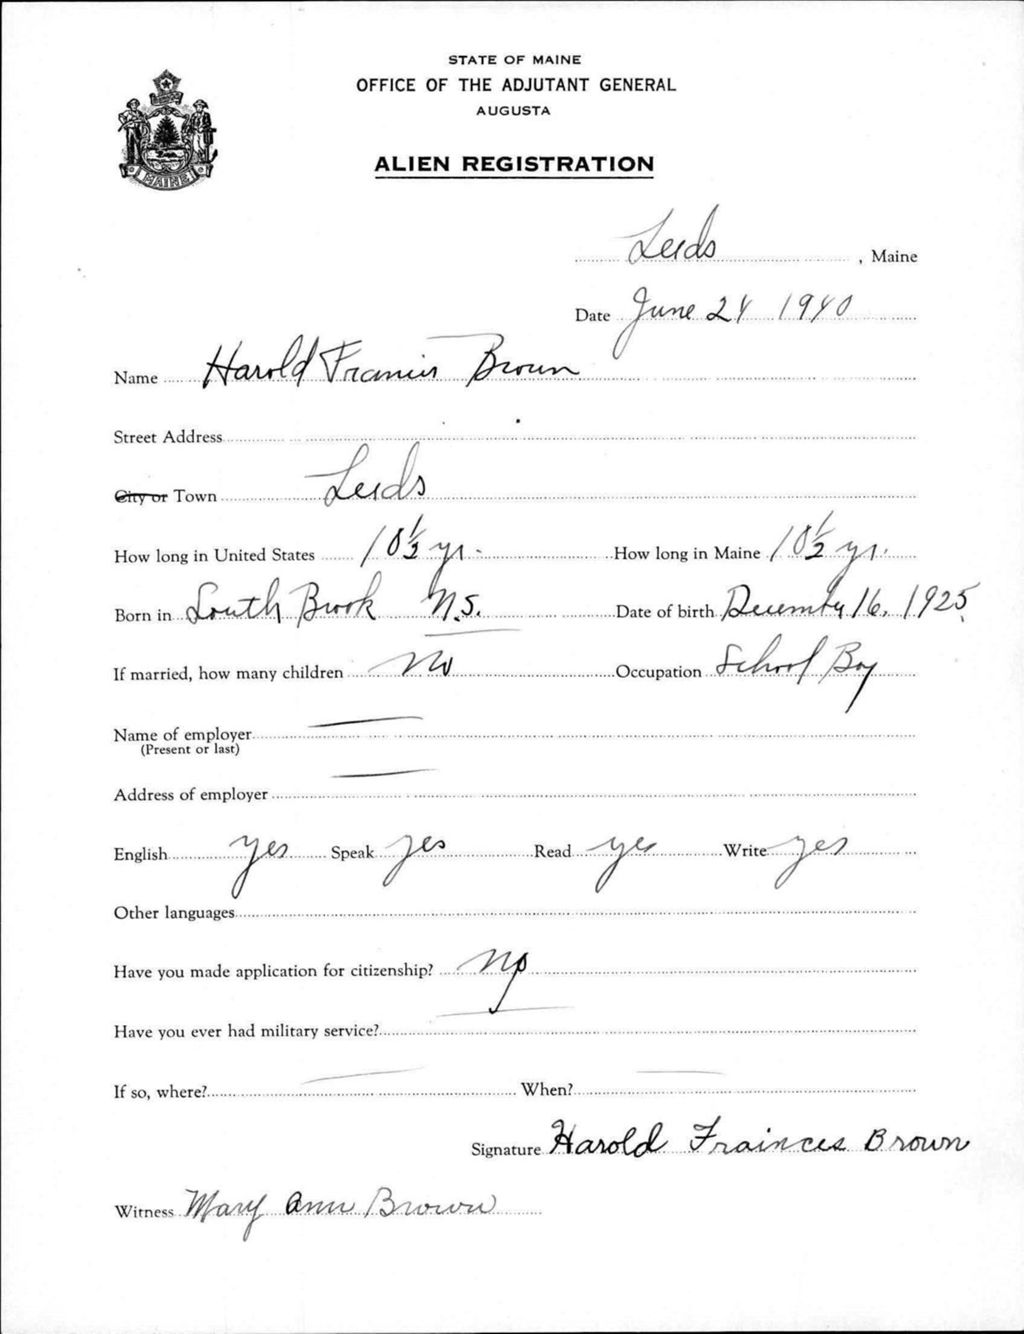 STATE OF MAINE
OFFICE OF THE ADJUTANT GENERAL
AUGUSTA
ALIEN REGISTRATION
MAINE
Leeds, Maine
Date June 24 1940
Name Harold Francis Brown
Street Address
City or Town Leeds
How long in United States 10½ yr. How long in Maine 10½ yr.
Born in South Brook N.S. Date of birth December 16, 1925
If married, how many children no Occupation School Boy
Name of employer
(Present or last)
Address of employer
English yes Speak yes Read yes Write yes
Other languages
Have you made application for citizenship? No
Have you ever had military service?
If so, where? When?
Signature Harold Frainces Brown
Witness Mary Ann Brown